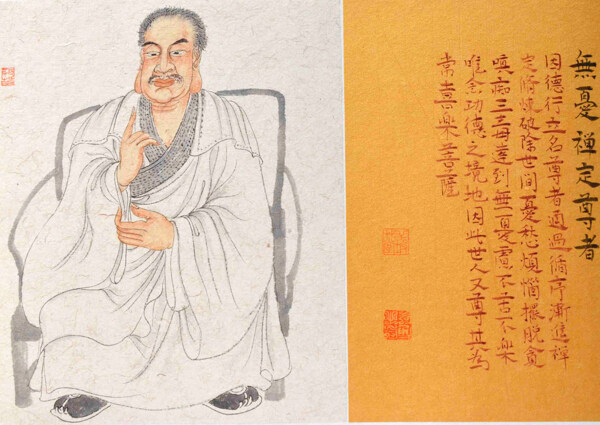 無憂禅定尊者
因德行立名尊者通過循序漸進禅
定修煉破除世間憂愁煩惱擺脫貪
嗔痴三毒達到無憂慮不苦不樂
唯念功德之境地因此世人又尊其為
常喜樂菩薩